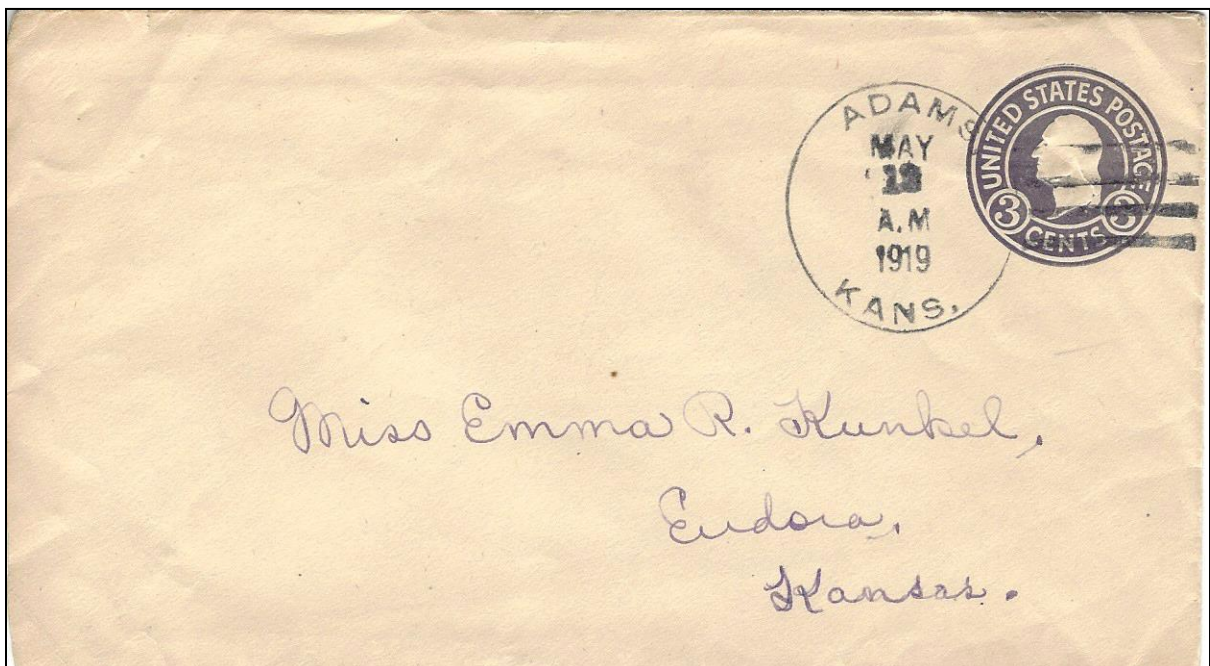 ADAMS
MAY
A.M
1919
KANS.
UNITED STATES POSTAGE
3 CENTS 3
Miss Emma R. Kunkel,
Eudora,
Kansas.